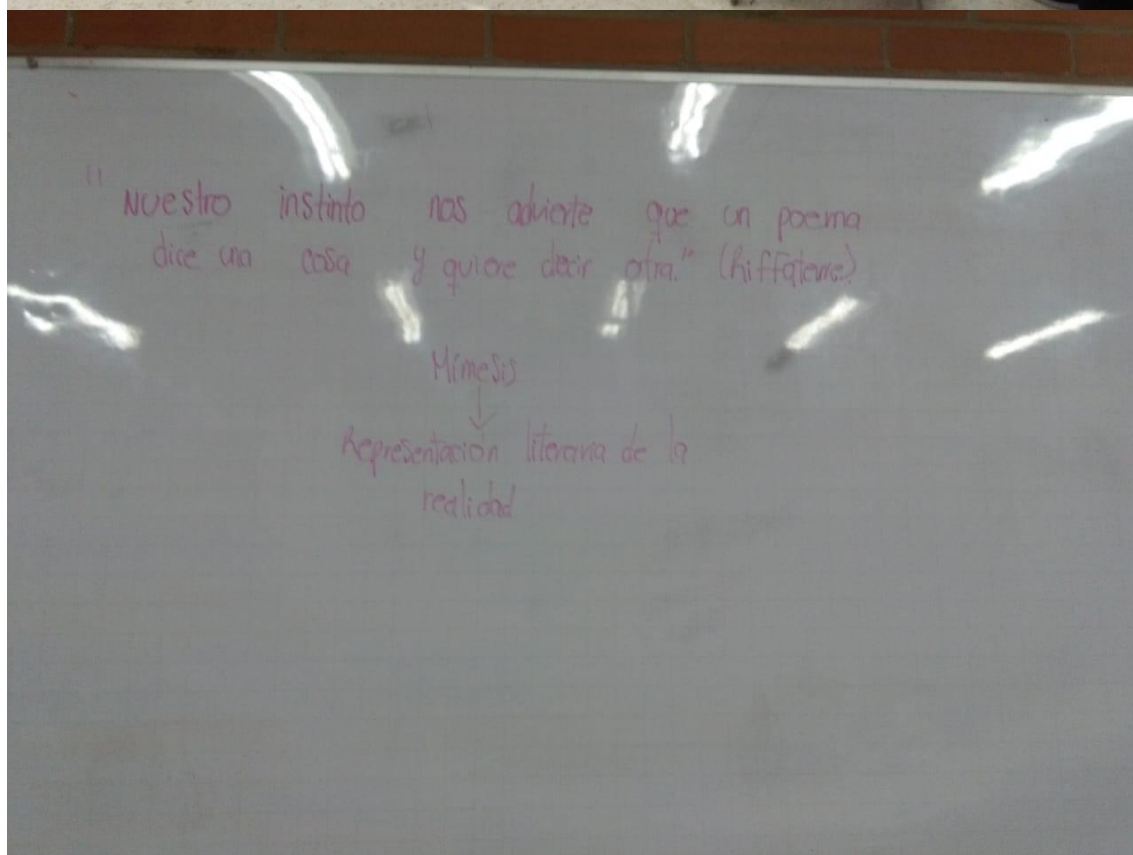 "Nuestro instinto nos advierte que un poema
dice una cosa y quiere decir otra." (Riffaterre)
Mímesis
↓
Representación literaria de la
realidad